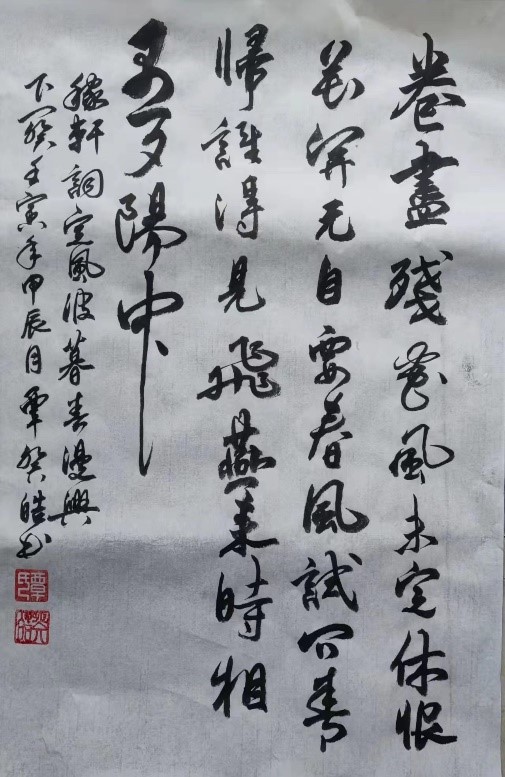 卷盡殘花風未定休恨
花開元自要春風試問春
歸誰得見飛燕来時相
遇夕陽中
稼軒詞定風波暮春漫興
下闋壬寅年甲辰月覃癸皓书
覃印